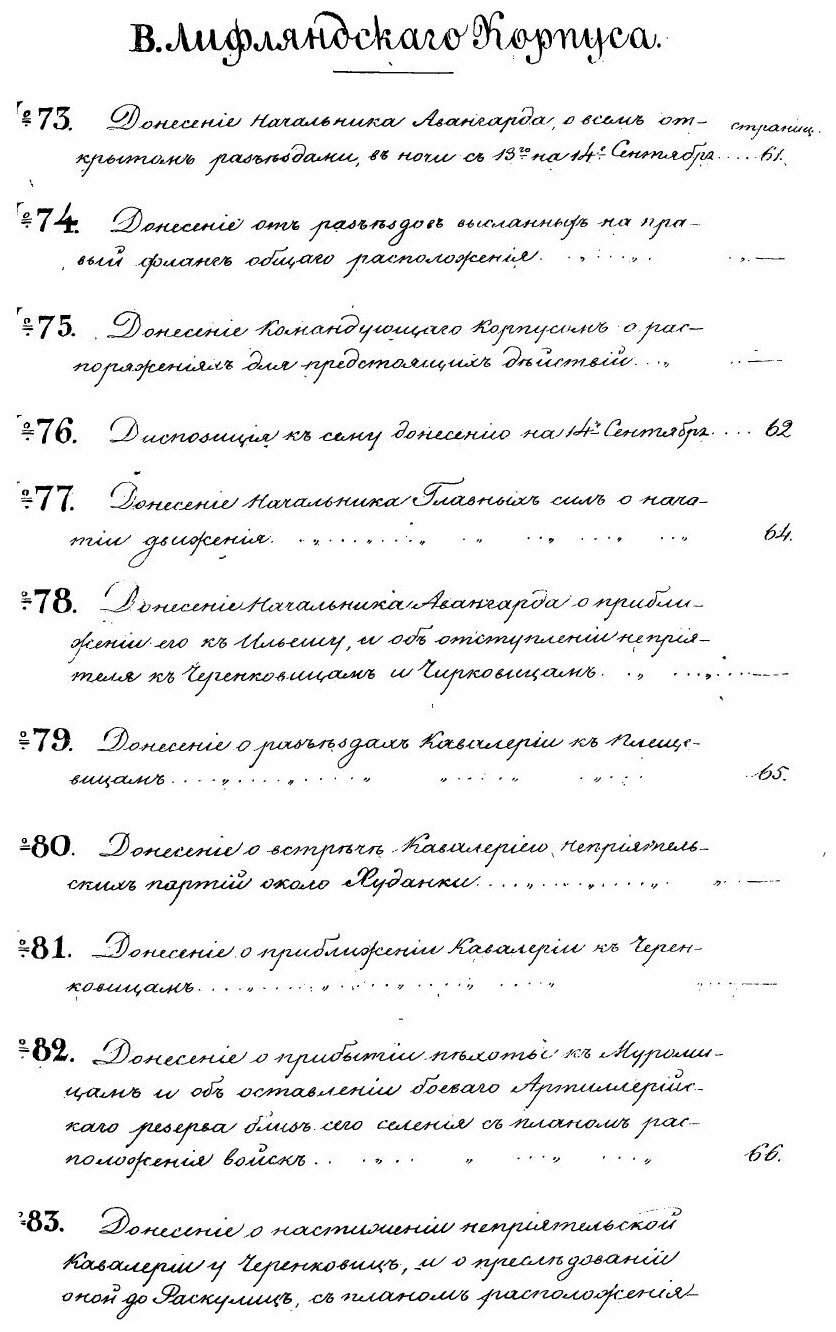 В. Лифляндскаго Корпуса.
№73. Донесеніе Начальника Авангарда, о всемъ от- страниц.
крытомъ разъѣздами, въ ночи съ 13го на 14е Сентября.... 61.
№74. Донесеніе отъ разъѣздовъ высланныхъ на пра-
вый флангъ общаго расположенія. . „ . . . „ . „ . —
№75. Донесеніе Командующаго Корпусомъ о рас-
поряженіяхъ для предстоящихъ дѣйствій . . . „ . . —
№76. Диспозиція къ сему донесенію на 14е Сентября.... 62
№77. Донесеніе Начальника Главныхъ силъ о нача-
тіи движенія. . . „ . . . „ . . „ „ . . „ . . . „ . . „ 64.
№78. Донесеніе Начальника Авангарда о прибли-
женіи его къ Ильешу, и объ отступленіи непрія-
теля къ Черенковицамъ и Чирковицамъ. . „ . . . „ . . . —
№79. Донесеніе о разъѣздахъ Кавалеріи къ Плеще-
вицамъ . . . . „ . . . „ . . . „ „ . . . „ . . „ . . 65.
№80. Донесеніе о встрѣчѣ Кавалеріею, непріятель-
скихъ партій около Худанки . . . „ . . . „ . . . „ . „ . —
№81. Донесеніе о приближеніи Кавалеріи къ Черен-
ковицамъ . . . . „ . . . . „ . . . „ . . . „ . . . „ „ . . . —
№82. Донесеніе о прибытіи пѣхоты къ Муроми-
цамъ и объ оставленіи боеваго Артиллерійс-
каго резерва близъ сего селенія съ планомъ рас-
положенія войскъ . . . „ . . „ „ . . . „ . . . „ 66.
№83. Донесеніе о настиженіи непріятельской
Кавалеріи у Черенковицъ, и о преслѣдованіи
оной до Раскулицъ, съ планомъ расположенія